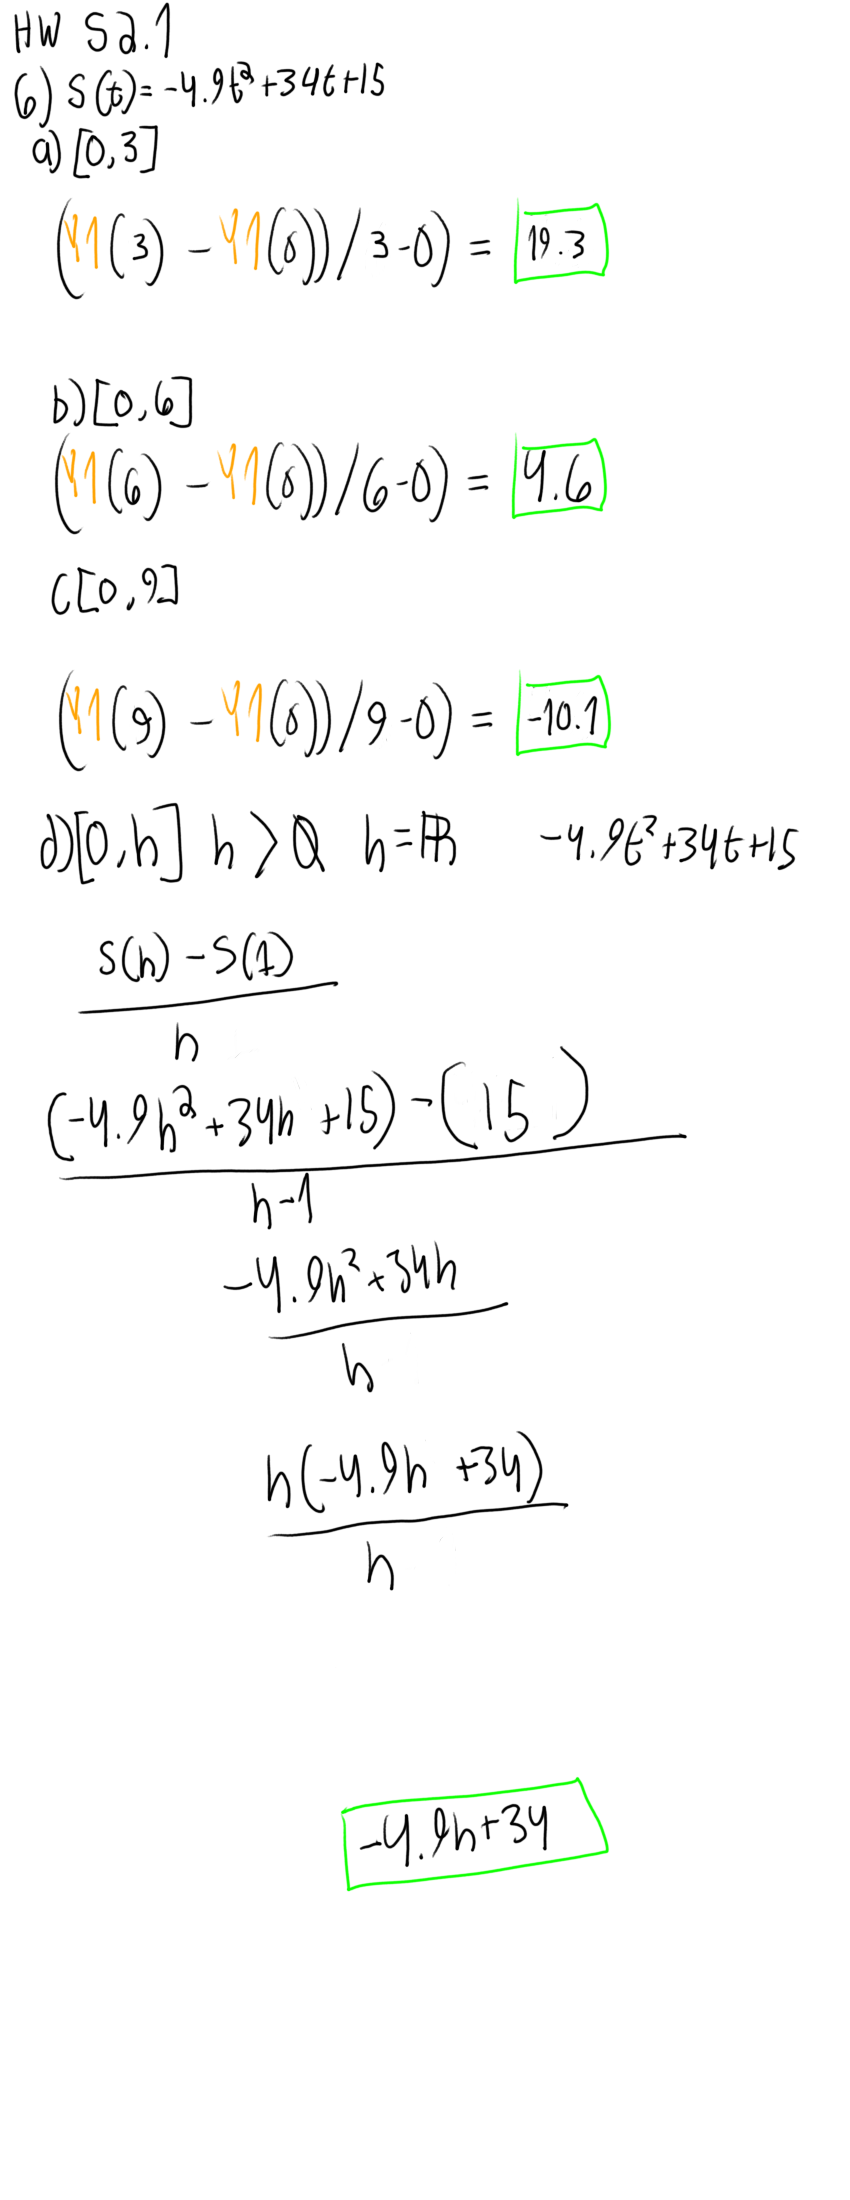 HW S2.1
6) S(t)= -4.9t²+34t+15
a) [0,3]
(Y1(3) - Y1(0))/3-0) = 19.3
b)[0,6]
(Y1(6) - Y1(0))/6-0) = 4.6
C[0,9]
(Y1(9) - Y1(0))/9-0) = -10.1
d)[0,h] h > 0 h=ℝ -4.9t²+34t+15
S(h) - S(1)
h
(-4.9h²+34h +15) - (15 )
h-1
-4.9h²+34h
h
h(-4.9h +34)
h
-4.9h+34